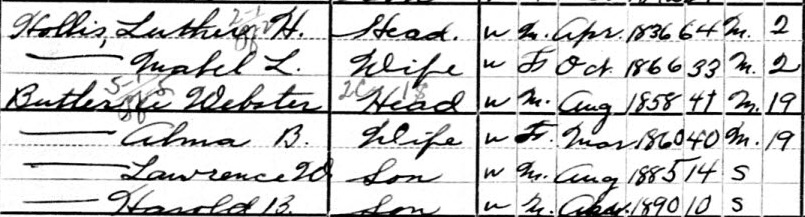 Hollis, Luther H. Head. W M. Apr. 1836 64 M. 2
— Mabel L. Wife W F Oct. 1866 33 M. 2
Butler Webster Head W M. Aug 1858 41 M. 19
— Alma B. Wife W F. Mar 1860 40 M. 19
— Lawrence W Son W M. Aug 1885 14 S
— Harold B. Son W M. 1890 10 S